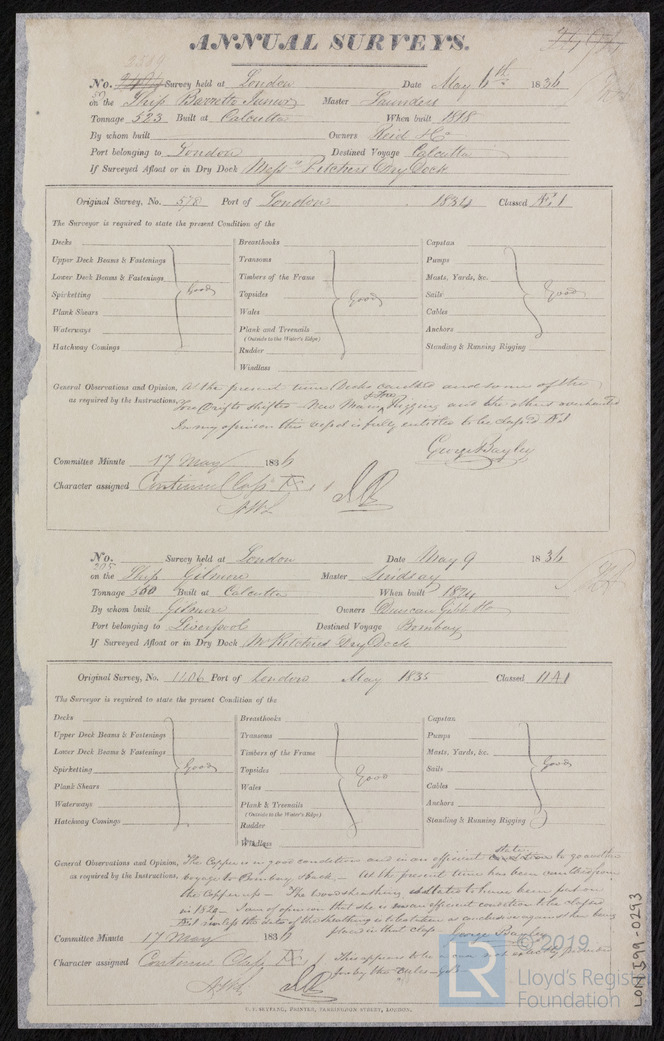 ANNUAL SURVEYS.
No. Survey held at London Date May 6th 1836
on the Ship Barretto Junior Master Saunders
Tonnage 523 Built at Calcutta When built 1818
By whom built Owners Reid & Co
Port belonging to London Destined Voyage Calcutta
If Surveyed Afloat or in Dry Dock Messrs Pitchers Dry Dock
Original Survey, No. 578 Port of London 1834 Classed Æ 1
The Surveyor is required to state the present Condition of the
Decks Breasthooks Capstan
Upper Deck Beams & Fastenings Transoms Pumps
Lower Deck Beams & Fastenings Timbers of the Frame Masts, Yards, &c.
Spirketting Good Topsides Good Sails Good
Plank Shears Wales Cables
Waterways Plank and Treenails Anchors
(Outside to the Water's Edge)
Hatchway Comings Rudder Standing & Running Rigging
Windlass
General Observations and Opinion, At the present time Decks caulked and some of the
as required by the Instructions, shifted New Main & Fore Rigging and the others overhauled
In my opinion this vessel is fully entitled to be classed Æ 1
George Bayley
Committee Minute 17 May 1836
Character assigned Continued Class Æ 1
No. Survey held at London Date May 9 1836
295
on the Ship Gilmore Master Lindsay
Tonnage 500 Built at Calcutta When built 1824
By whom built Gilmore Owners Duncan Gibb &Co
Port belonging to Liverpool Destined Voyage Bombay
If Surveyed Afloat or in Dry Dock Mr Pitchers Dry Dock
Original Survey, No. 1106 Port of London May 1835 Classed
The Surveyor is required to state the present Condition of the
Decks Breasthooks Capstan
Upper Deck Beams & Fastenings Transoms Pumps
Lower Deck Beams & Fastenings Timbers of the Frame Masts, Yards, &c.
Spirketting Good Topsides Good Sails Good
Plank Shears Wales Cables
Waterways Plank & Treenails Anchors
(Outside to the Water's Edge)
Hatchway Comings Rudder Standing & Running Rigging
Windlass
General Observations and Opinion, The Copper is in good condition and in an efficient state to go another
as required by the Instructions, voyage to Bombay & back. At the present time has been caulked from
the copper up - The wood sheathing is stated to have been put on
in 1829. I am of opinion that she is in an efficient condition to be classed
Æ 1 unless the date of the sheathing is to be taken as conclusive against her being
placed in that class George Bayley
Committee Minute 17 May 1836
This appears to be a case not exactly provided
Character assigned Continue Class Æ 1
for by the Rules
PRINTER, FARRINGDON STREET, LONDON.
© 2019
LR
Lloyd's Register
Foundation
LON 599-0293